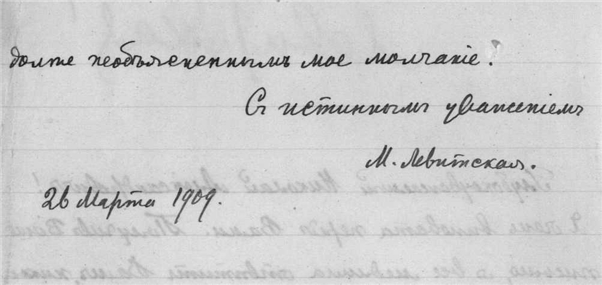 долѣе необъясненнымъ мое молчаніе.
Съ истиннымъ уваженіемъ
М. Левитская.
26 Марта 1909.